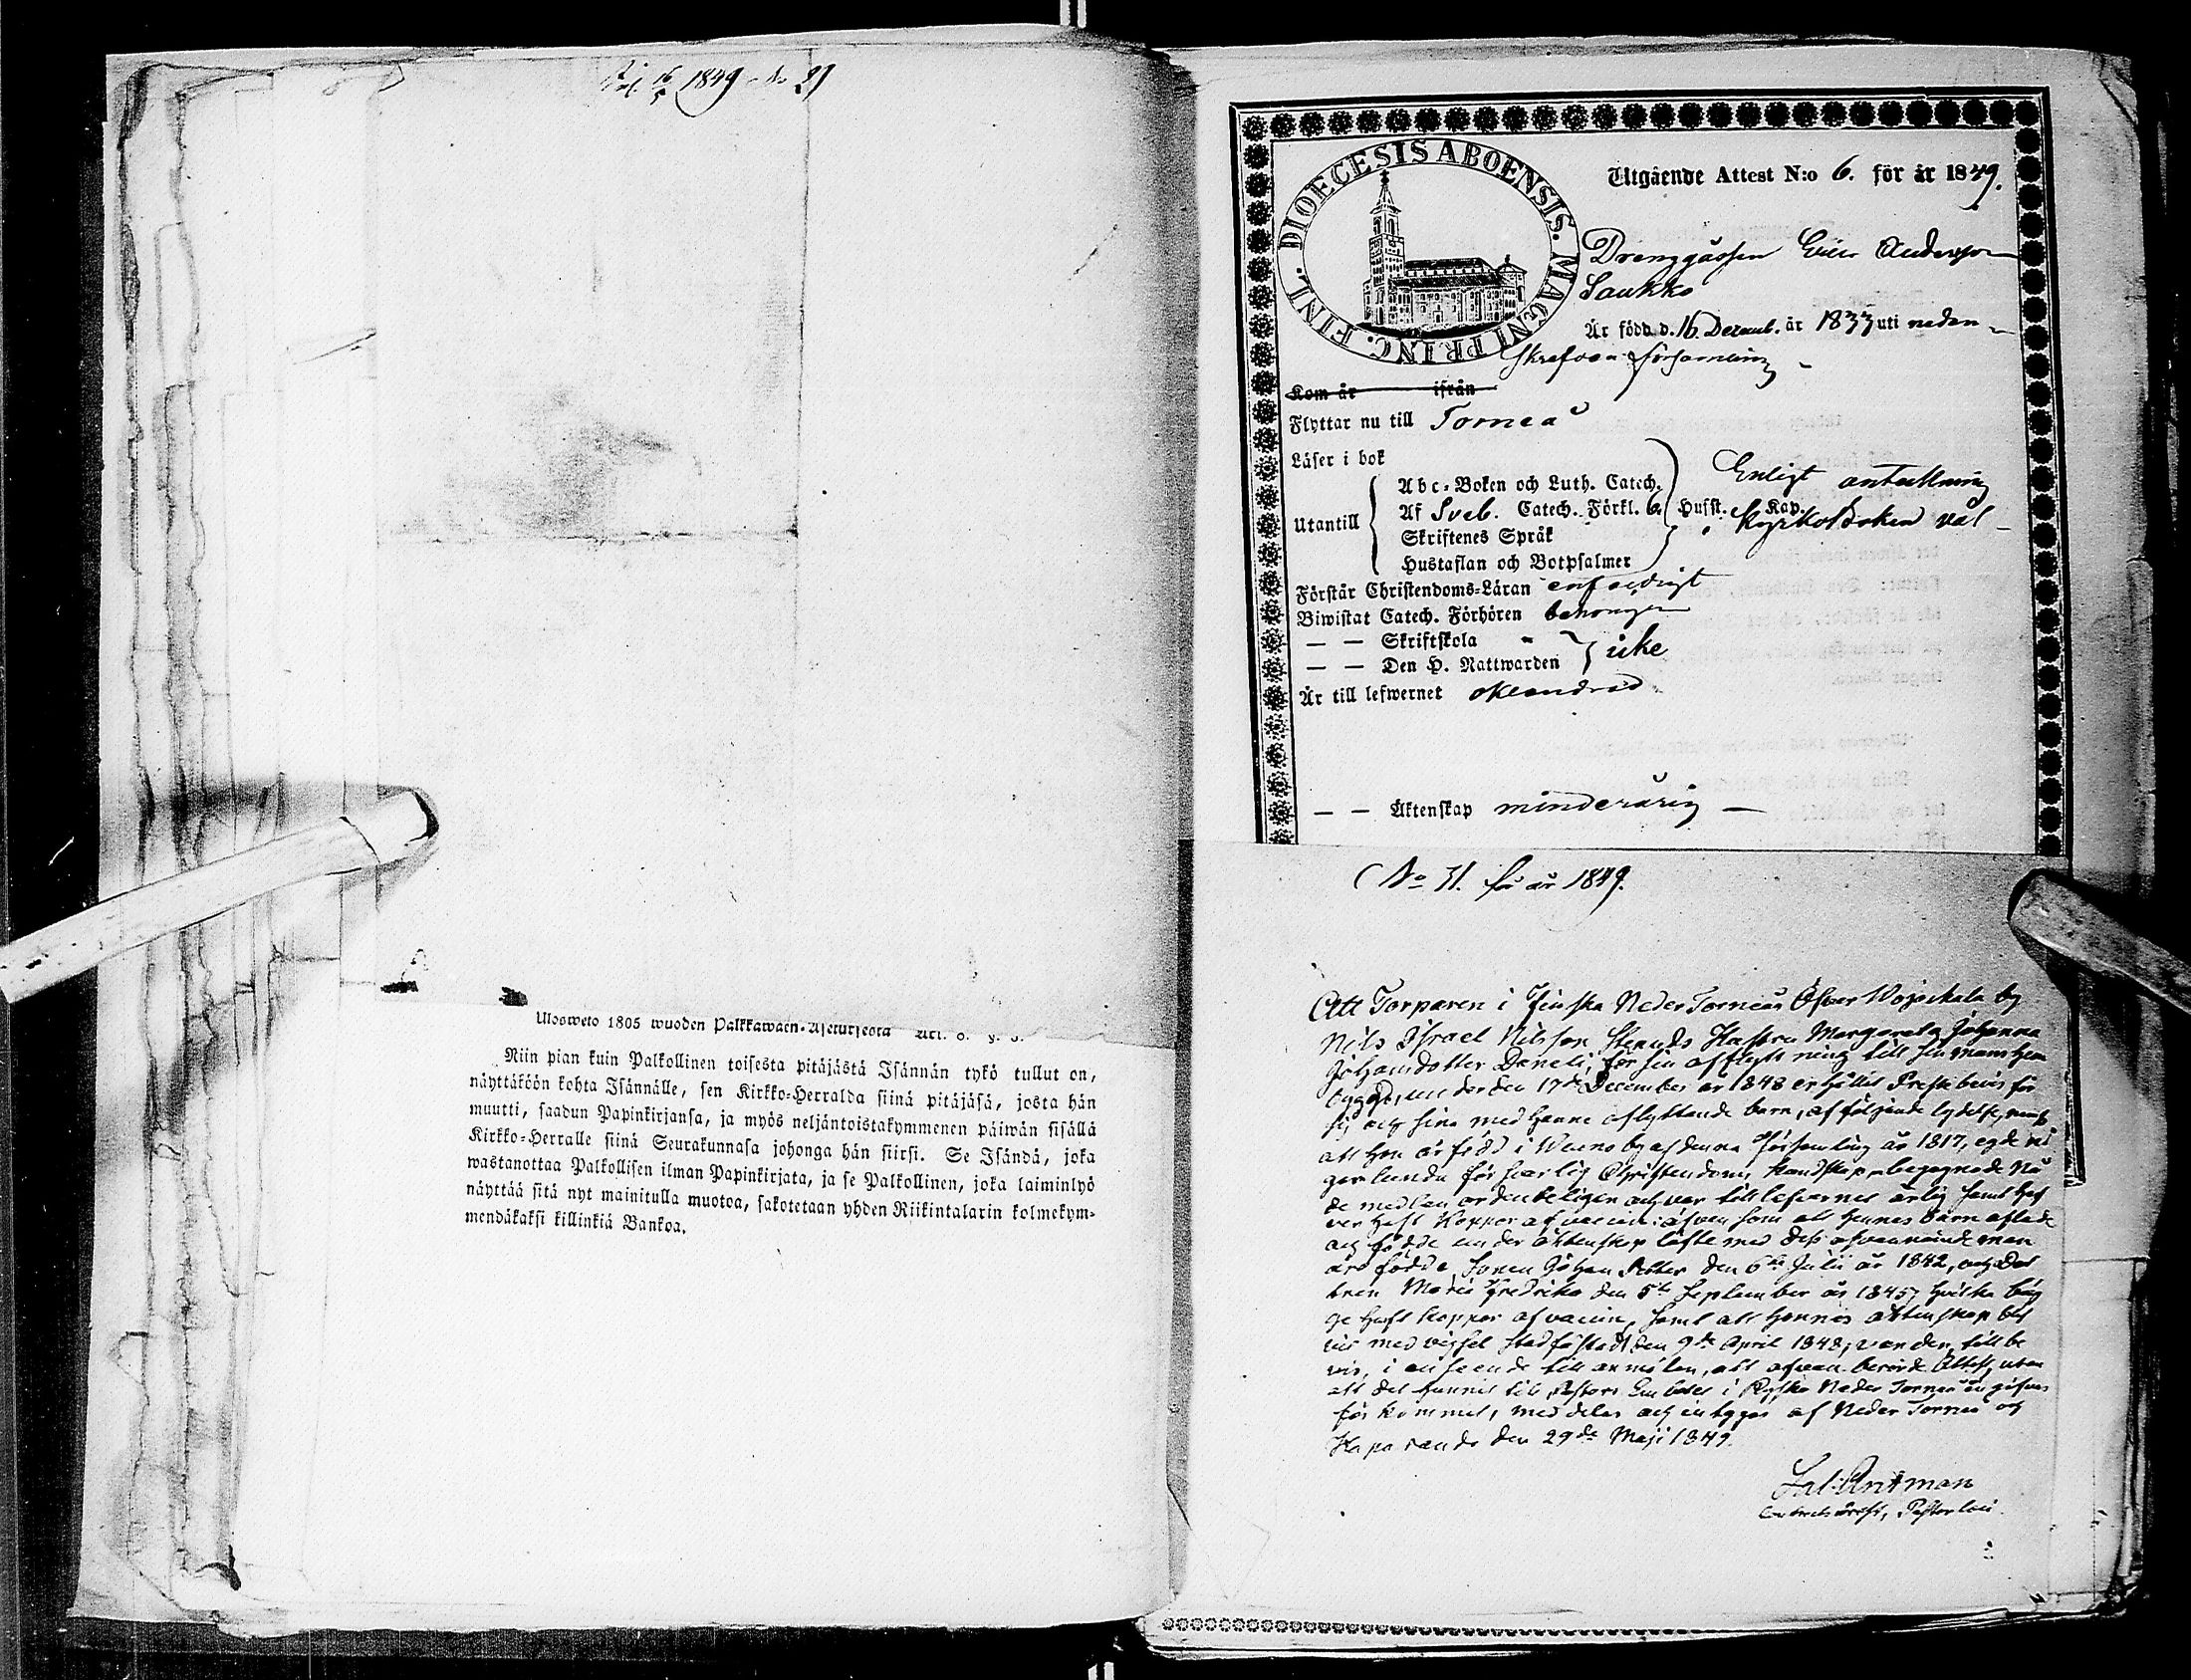 1849 No 29
Ulosweto 1805 wuoden Palkkawäen-Asetuksesta Art. 6. §. 5.
Niin pian kuin Palkollinen toisesta pitäjästä Isännän tykö tullut on,
näyttäköön kohta Isännälle, sen Kirkko-Herralda siinä pitäjäsä, josta hän
muutti, saadun Papinkirjansa, ja myös neljäntoistakymmenen päiwän sisällä
Kirkko-Herralle siinä Seurakunnasa johonga hän siirsi. Se Isändä, joka
wastanottaa Palkollisen ilman Papinkirjata, ja se Palkollinen, joka laiminlyö
näyttää sitä nyt mainitulla muotoa, sakotetaan yhden Riikintalarin kolmekym-
mendäkaksi killinkiä Bankoa.
DIOECESIS ABOENSIS. MAGNI PRINC. FINL.
Utgående Attest N:o 6. för år 1849.
Drenggåssen Eric Andersson
Saukko
Är född d. 16 Decemb. år 1833 uti nedan-
skrefven församling
Kom år ifrån
Flyttar nu till Torneå
Läser i bok
Utantill
Abc-Boken och Luth. Catech.
Af Sveb. Catech. Förkl. 6. Husst. Kap.
Skriftenes Språk
Hustaflan och Botpsalmer
Enligt anteckning
i Kyrkoboken väl
Förstår Christendoms-Läran enfaldigt
Biwistat Catech. Förhören behörigen
— — Skriftskola
— — Den H. Nattwarden
icke
Är till lefwernet oklandrad
— — Äktenskap minderårig —
No 31. för år 1849.
Att Torparen i Finska Neder Torneå Öfver Wojackala by
Nils Israel Nilsson Stenuds Hustru Margareta Johanna
Johansdotter Daneli, för sin afflyttning till sin mans hem
bygd, under den 17de December år 1848 erhållit Prestebevis för
sig och sina med henne aflyttande barn, af följande lydelse,
att hon är född i Wuono by af denna Församling år 1817, egde nö
jer haft Koppor af vaccin: äfven som att hennes barn aflade
och födde under äktenskaps löfte med dess ofvannämnde man
äro födde Sonen Johan Petter den 6te Julii år 1842, och Dot
tren Maria Fredrika den 5te September år 1845, hvilka båg
ge haft koppor af vaccin, samt att hennes äktenskap bli
vit med vigsel stadfästadt den 9de April 1848, varder, till be
vis, i anseende till anmälan, att ofvan berörde Attest, utan
att det hunnit till Pastors Embetet i Ryska Neder Torneå ingifvas
för kommit, meddelas och intygas af Neder Torneå och
Haparanda den 29de Maji 1849.
Sal. Antman